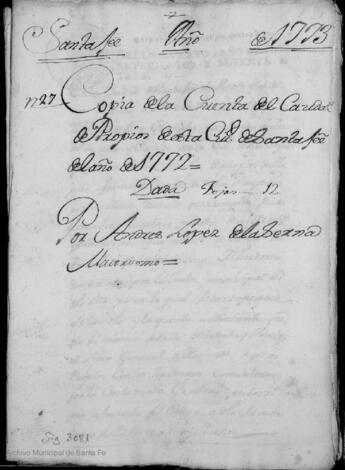 Santa fee Año de 1773
nº 27 Copia de la Cuenta del Caudal
de Propios de esta Ciu.d de Santa fee
del año de 1772=
Dada Fojas 12
Por Andres Lopez de la Serna
Maiordomo=
Sig 3081
Archivo Municipal de Santa Fe